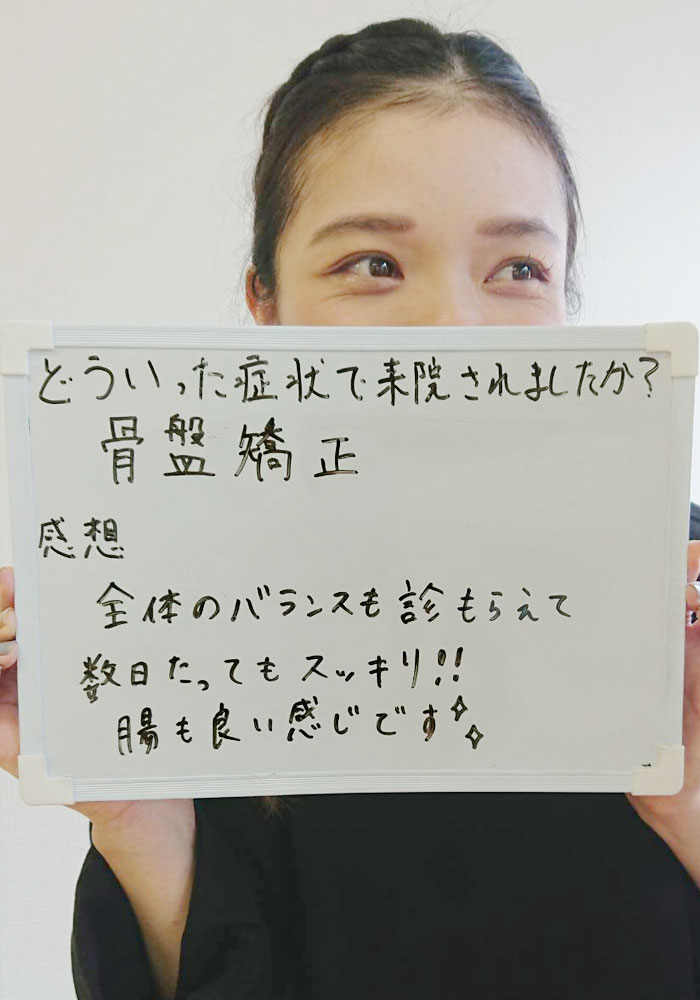 どういった症状で来院されましたか?
骨盤矯正
感想
全体のバランスも診もらえて
数日たってもスッキリ!!
腸も良い感じです✧✧